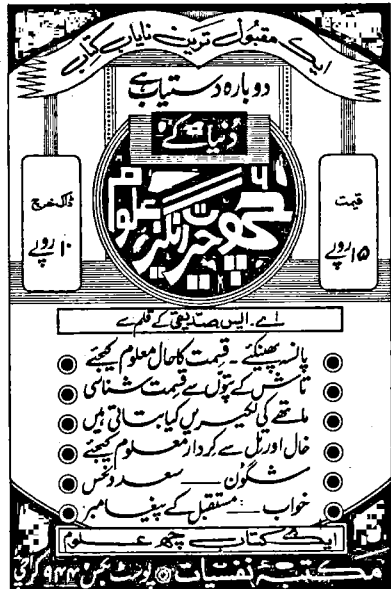 ایک مقبول ترین نایاب کتاب
دوبارہ دستیاب ہے
دُنیا کے
چھ حیرت انگیز علوم
قیمت
۱۵ روپے
ڈاک خرچ
۱۰ روپے
اے۔ ایس صدیقی کے قلم سے
پانسہ پھینکئے - قسمت کا حال معلوم کیجئے
تاش کے پتوں سے قسمت شناسی
ماتھے کی لکیریں کیا بتاتی ہیں
خال اور تل سے کردار معلوم کیجئے
شگون — سعد و نحس
خواب — مستقبل کے پیغامبر
ایک کتاب چھ علوم
مکتبۂ نفسیات پوسٹ بکس ۹۴۴ کراچی